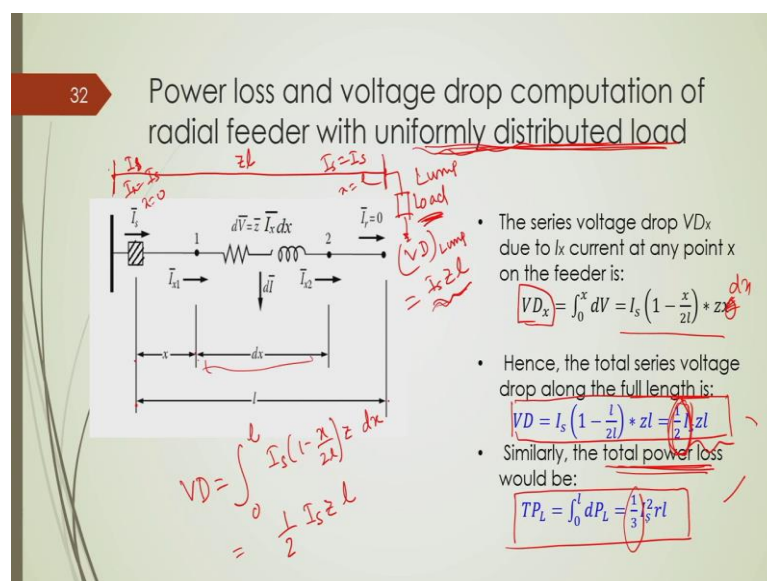 32
Power loss and voltage drop computation of
radial feeder with uniformly distributed load
Is zl Is=Is
Ix=Is x=
x=0
Lump
Load
(VD)Lump
= Is zl
I̅s dV̅=z̅ I̅xdx I̅r=0
1 2
I̅x1 dI̅ I̅x2
x dx
l
VD = ∫₀ˡ Is(1-x/2l) z dx
= 1/2 Is z l
• The series voltage drop VDx
due to Ix current at any point x
on the feeder is:
dx
VDx = ∫₀ˣ dV = Is(1 − x/2l) * zx
• Hence, the total series voltage
drop along the full length is:
VD = Is(1 − l/2l) * zl = 1/2 Iszl
• Similarly, the total power loss
would be:
TPL = ∫₀ˡ dPL = 1/3 Is²rl